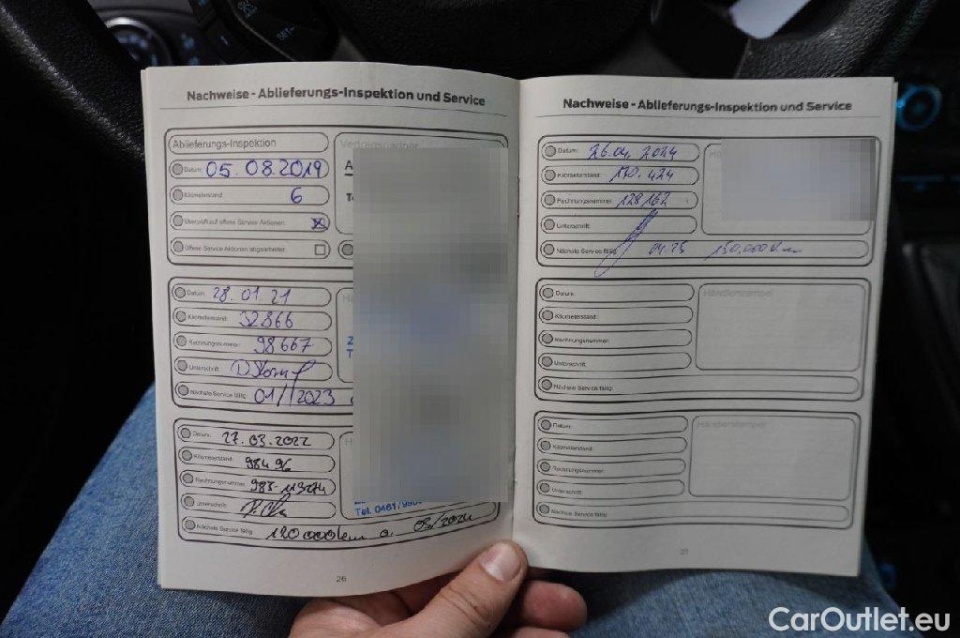 Nachweise - Ablieferungs-Inspektion und Service
Ablieferungs-Inspektion
Datum: 05.08.2019
Kilometerstand: 6
Überprüft auf offene Service Aktionen:
Offene Service Aktionen abgearbeitet:
Datum: 28.01.21
Kilometerstand: 32866
Rechnungsnummer: 98667
Unterschrift:
Nächste Service fällig: 01/2023
Datum: 27.03.2022
Kilometerstand: 98496
Rechnungsnummer:
Unterschrift:
Nächste Service fällig: 120 000km o. 03/2024
Tel. 0461/
26
Nachweise - Ablieferungs-Inspektion und Service
Datum: 26.04.2024
Kilometerstand: 170.424
Rechnungsnummer: 128162
Unterschrift:
Nächste Service fällig: 04.25
Datum:
Händlerstempel
Kilometerstand:
Rechnungsnummer:
Unterschrift:
Nächste Service fällig:
Datum:
Händlerstempel
Kilometerstand:
Rechnungsnummer:
Unterschrift:
Nächste Service fällig:
CarOutlet.eu